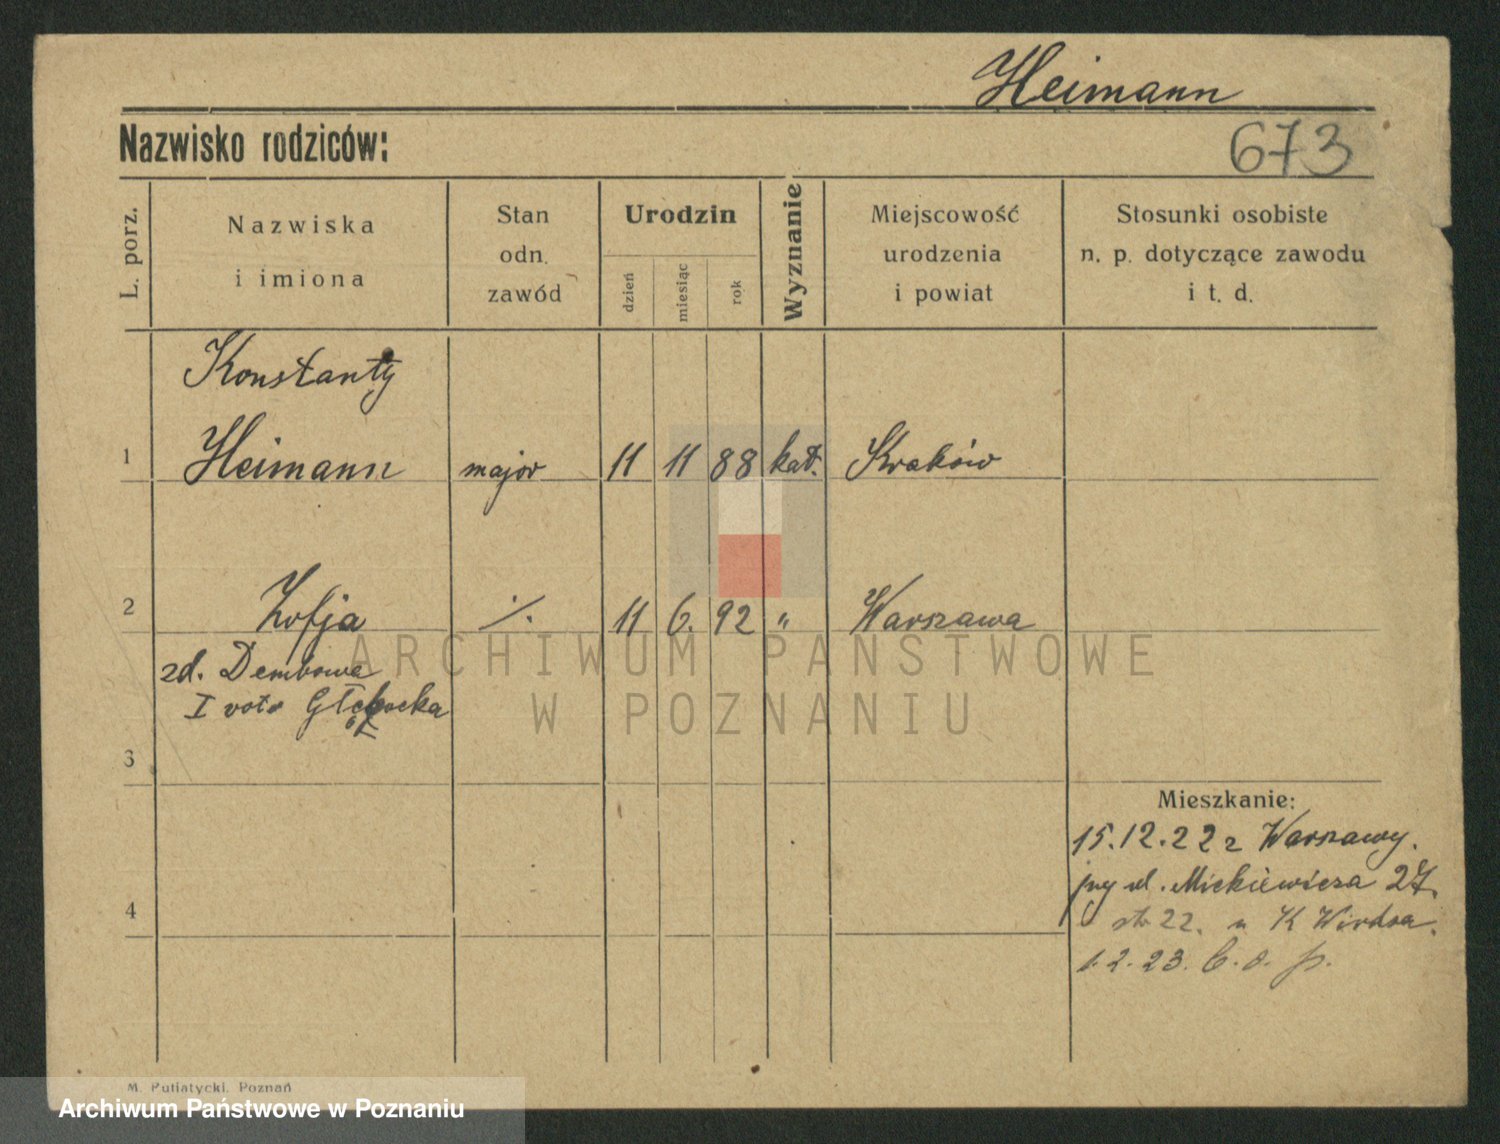 Heimann
Nazwisko rodziców:
673
L. porz.
Nazwiska
i imiona
Stan
odn.
zawód
Urodzin
dzień
miesiąc
rok
Wyznanie
Miejscowość
urodzenia
i powiat
Stosunki osobiste
n. p. dotyczące zawodu
i t. d.
Konstanty
1 Heimann major 11 11 88 kat. Kraków
2 Zofja ·/. 11 6. 92 " Warszawa
zd. Dembowa
I voto
3
Mieszkanie:
15.12.22 z Warszawy.
przy ul. Mickiewicza 27.
22. u K
4
1.2.23.
ARCHIWUM PAŃSTWOWE
W POZNANIU
M. Putiatycki, Poznań
Archiwum Państwowe w Poznaniu